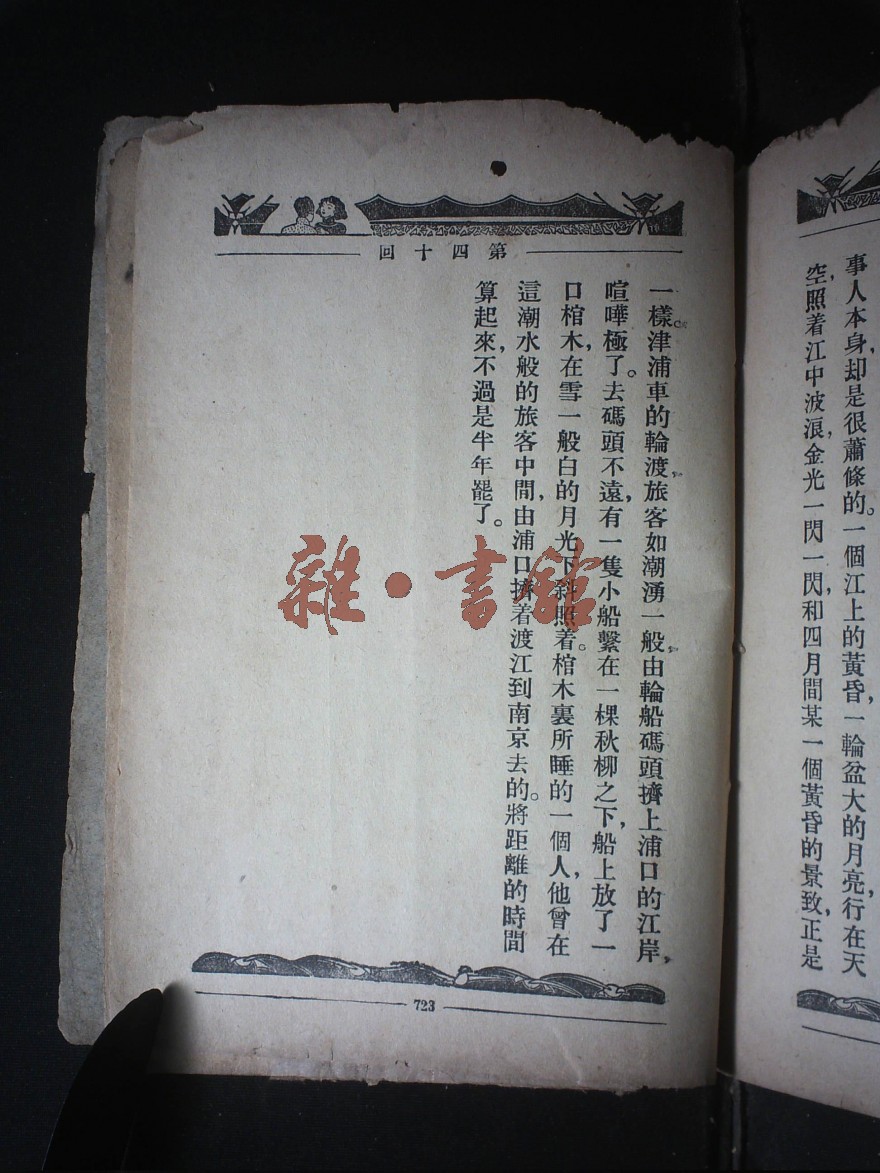 事人本身，却是很蕭條的。一個江上的黃昏，一輪盆大的月亮，行在天
空，照着江中波浪，金光一閃一閃，和四月間某一個黃昏的景致，正是
第四十回
一樣。津浦車的輪渡，旅客如潮湧一般，由輪船碼頭擠上浦口的江岸，
喧嘩極了。去碼頭不遠，有一隻小船繫在一棵秋柳之下，船上放了一
口棺木，在雪一般白的月光下斜照着。棺木裏所睡的一個人，他曾在
這潮水般的旅客中間，由浦口擠着渡江到南京去的。將距離的時間
算起來，不過是半年罷了。
723
雜·書館